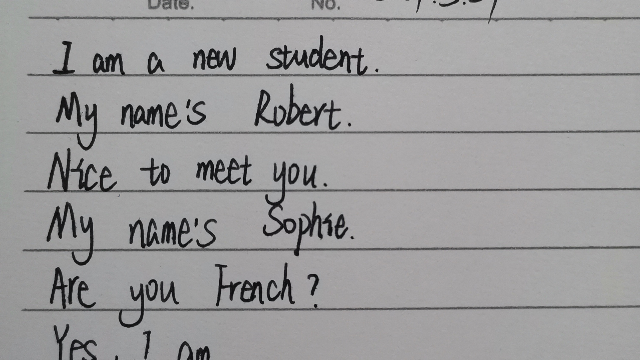 Date. No.
I am a new student.
My name's Robert.
Nice to meet you.
My name's Sophie.
Are you French?
Yes, I am